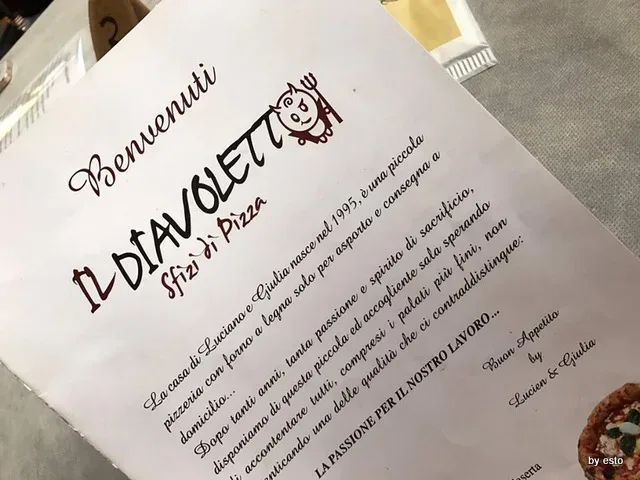 Benvenuti
IL DIAVOLETTO
Sfizi di Pizza
La casa di Luciano e Giulia nasce nel 1995, è una piccola
pizzeria con forno a legna solo per asporto e consegna a
domicilio...
Dopo tanti anni, tanta passione e spirito di sacrificio,
disponiamo di questa piccola ed accogliente sala sperando
di accontentare tutti, compresi i palati più fini, non
enticando una delle qualità che ci contraddistingue:
LA PASSIONE PER IL NOSTRO LAVORO...
Buon Appetito
by
Lucien & Giulia
by esto